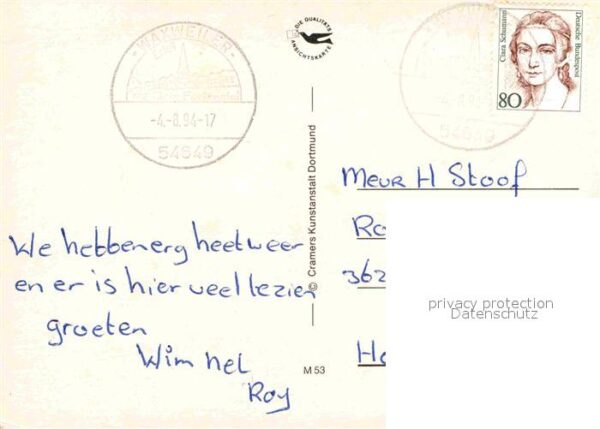 WAXWEILER
-4.-8.94-17
54649
DIE QUALITÄTS
ANSICHTSKARTE
-4.-8.94
54649
Clara Schumann
Deutsche Bundespost
80
© Cramers Kunstanstalt Dortmund
Meur H Stoof
Ro
362
He
privacy protection
Datenschutz
We hebben erg heet weer
en er is hier veel te zien
groeten
Wim Nel
Roy
M 53